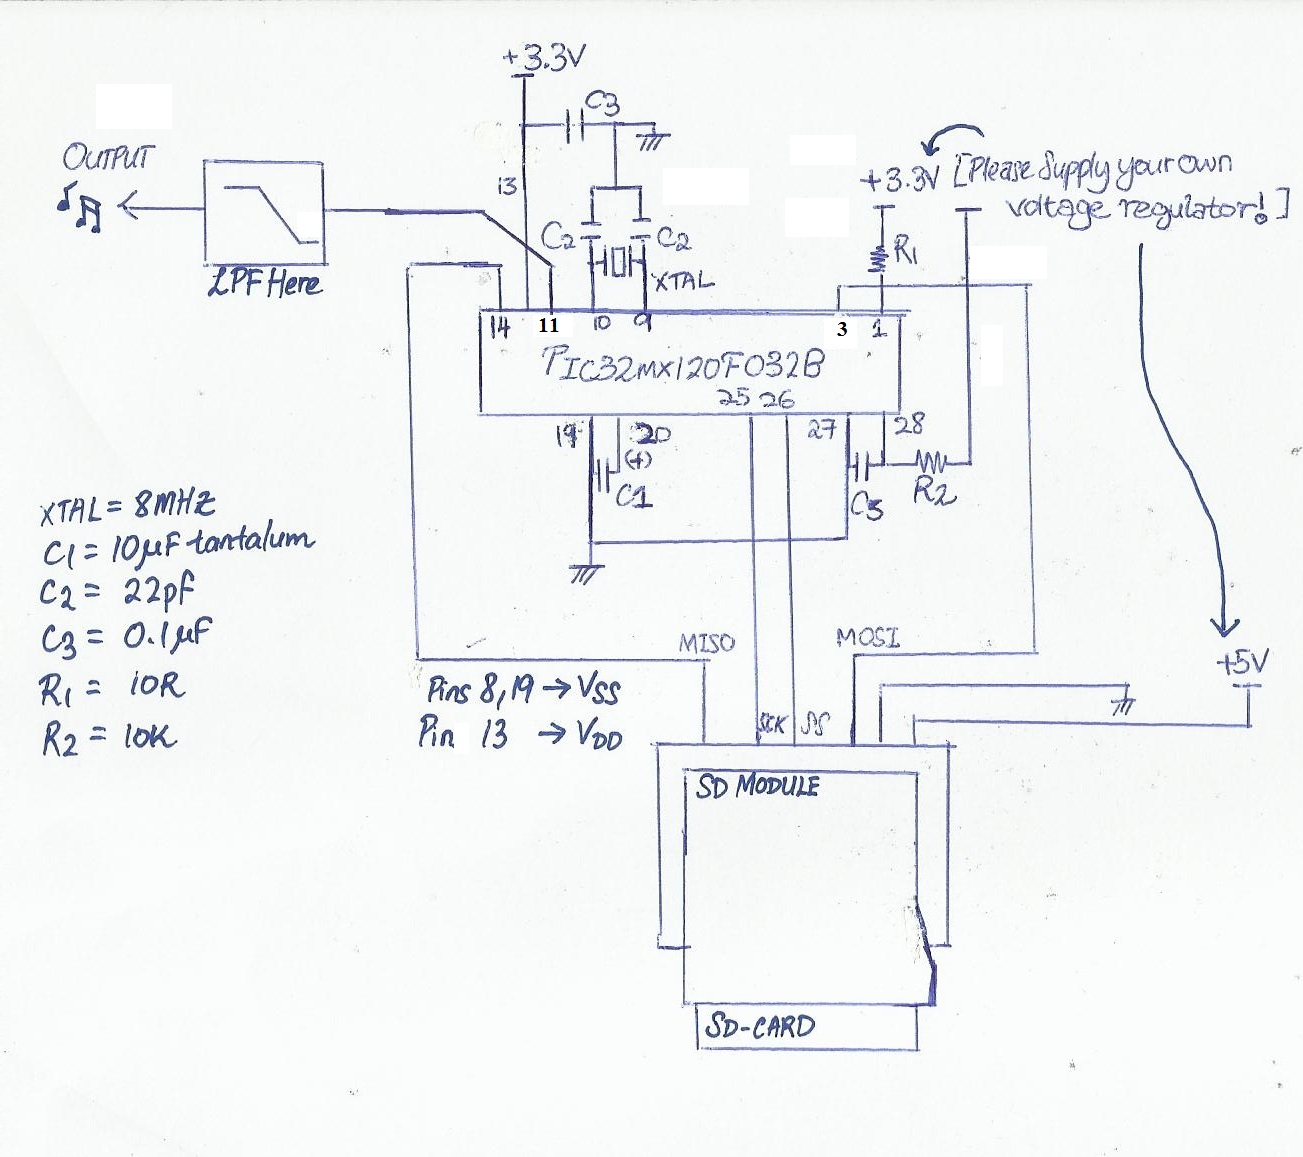 +3.3V
C3
OUTPUT
13
+3.3V [Please Supply your own
voltage regulator!]
C2
C2
R1
XTAL
LPF Here
14
11
10
9
3
1
PIC32MX120F032B
25 26
19
20
27
28
(+)
C1
C3
R2
XTAL = 8MHz
C1 = 10µF tantalum
C2 = 22pf
C3 = 0.1µF
R1 = 10R
R2 = 10K
MISO
MOSI
+5V
Pins 8,19 → VSS
Pin 13 → VDD
SCK
SS
SD MODULE
SD-CARD